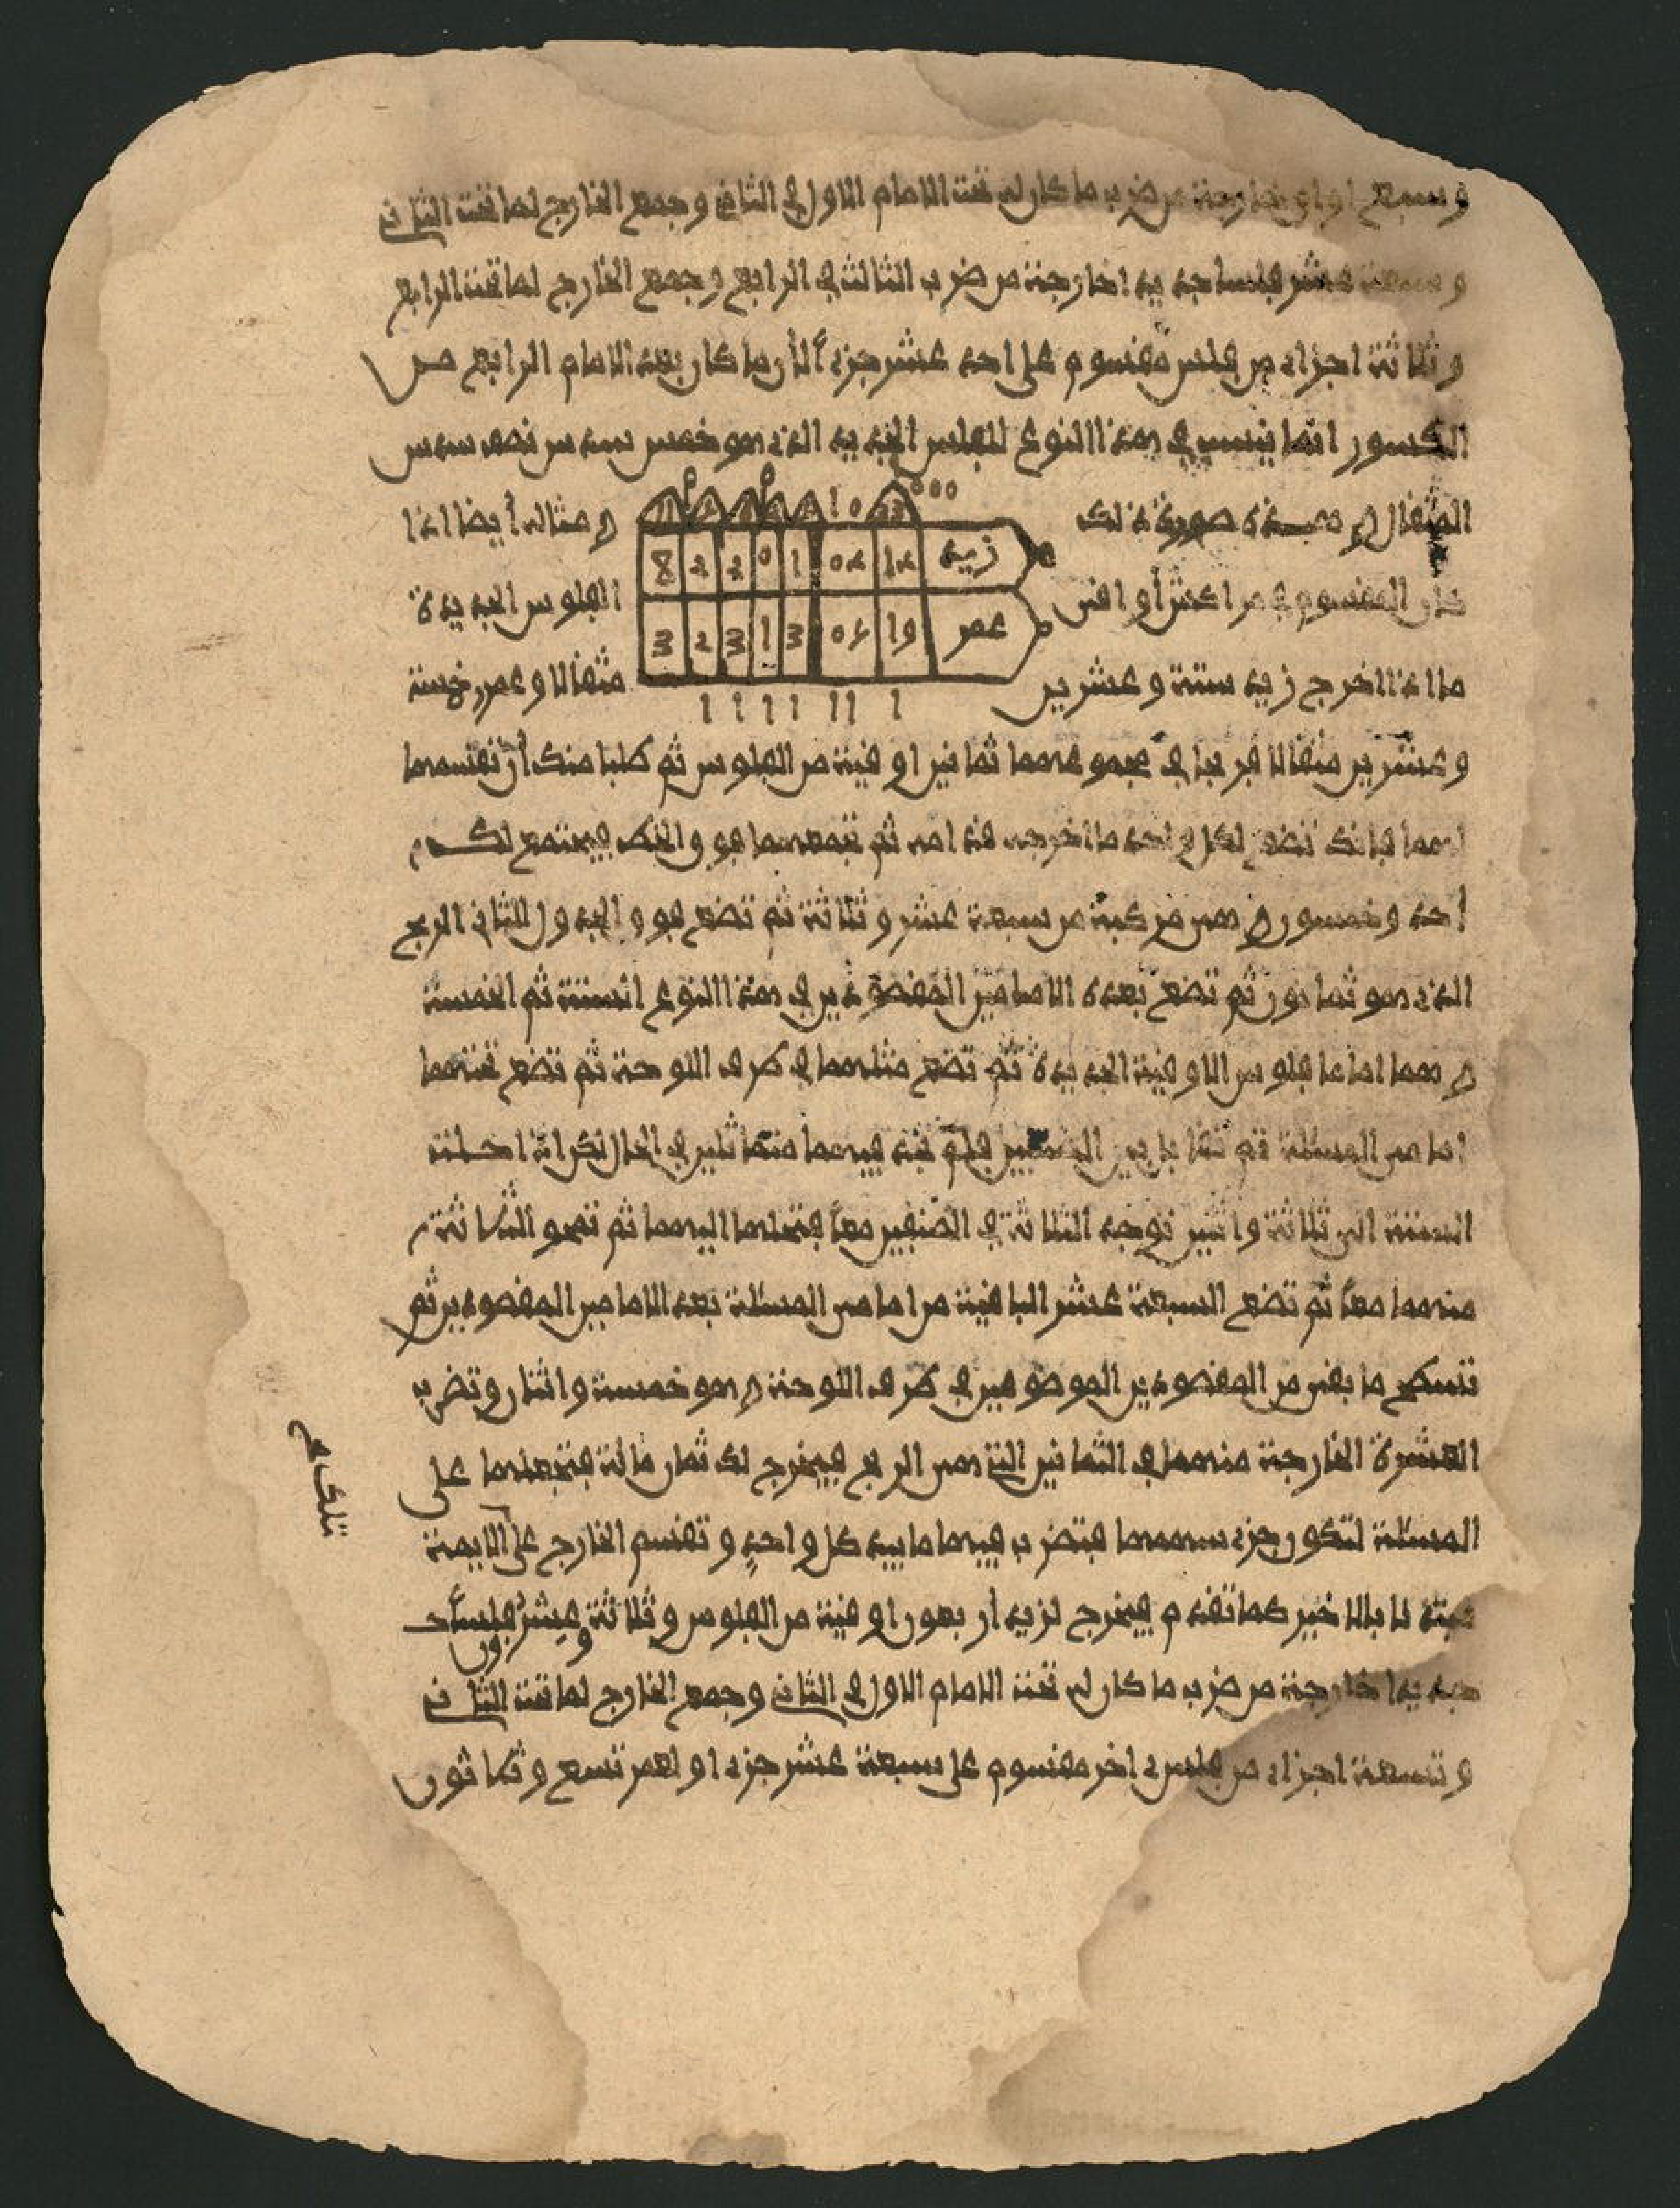 وسبع اواق خارجة من ضرب ما كان لى تحت الامام الاول في الثاني وجمع الخارج لما تحت الثاني
وسبعة عشر فلسا جديديا خارجة من ضرب الثالث في الرابع وجمع الخارج لما تحت الرابع
وثلاثة اجزاء من فلس مقسوم على احد عشر جزءا لأن ما كان بعد الامام الرابع من
الكسور انما ينسب في هذا النوع للفلس الجديد الذى هو خمس سدس نصف سدس
المثقال وهذه صورة ذلك
ومثاله أيضا اذا
زيد ١٤ ٠٤ 1 0 2 2 8
كان المقسوم فى من اكثر أو اقل
الفلوس الجديدة
عمر ١٩ ٠٦ 3 1 3 2 3
ما اذا اخرج زيد ستة وعشرين
مثقالا وعمر خمسة
1 1 1 1 11 1
وعشرين مثقالا فربحا في مجموعهما ثمانين اوقية من الفلوس ثم طلبا منك أن تقسمها
لهما فانك تضع لكل واحد ما اخرجه قدامه ثم تجمعهما هو والخط فيجتمع لك
أحد وخمسون وهى مركبة من سبعة عشر وثلاثة ثم تضع هو والجدول الثاني الربح
الذى هو ثمانون ثم تضع بعده الامامين المقصودين في هذا النوع الستة ثم الخمسة
وهما اماما فلوس الاوقية الجديدة ثم تضع مثلهما في طرف اللوحة ثم تضع تحتهما
امامى المسئلة ثم تقابل بين الصنفين فلم تجد فيهما متماثلين في الحال لكن اذا حللت
الستة الى ثلاثة واثنين توجد الثلاثة في الصنفين معا فتحلها اليهما ثم تمحو الثلاثة
منهما معا ثم تضع السبعة عشر الباقية من امامى المسئلة بعد الامامين المقصودين ثم
تسطح ما بقى من المقصودين الموضوعين في طرف اللوحة وهو خمسة واثنان وتضرب
العشرة الخارجة منهما في الثمانين التى هى الربح فيخرج لك ثمان مائة فتجعلها على
المسئلة لتكون جزء سهمها فتضرب فيها ما بيد كل واحد وتقسم الخارج على الايمة
مبتدئا بالاخير كما تقدم فيخرج لزيد اربعون اوقية من الفلوس وثلاثة وعشرون فلسا
جديديا خارجة من ضرب ما كان لى تحت الامام الاول في الثاني وجمع الخارج لما تحت الثاني
وتسعة اجزاء من فلس اخر مقسوم على سبعة عشر جزءا ولعمر تسع وثلاثون
تلك